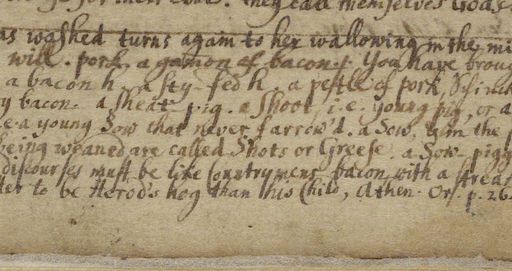 for their one. they call themselves Gods
as washed turns again to her wallowing in the mi
will. pork. a gamon of bacon. You have broug
a bacon h. a sty-fed h. a pestle of pork,
y bacon. a sheat pig. a shoot i.e. young pig, or a
.e. a young Sow that never farrow'd. a Sow. the
being weaned are called Shots or Greese. a Sow-pigg
discourses must be like Countrymens bacon with a streak
ter to be Herod's hog than his Child, Athen. Or. p. 26